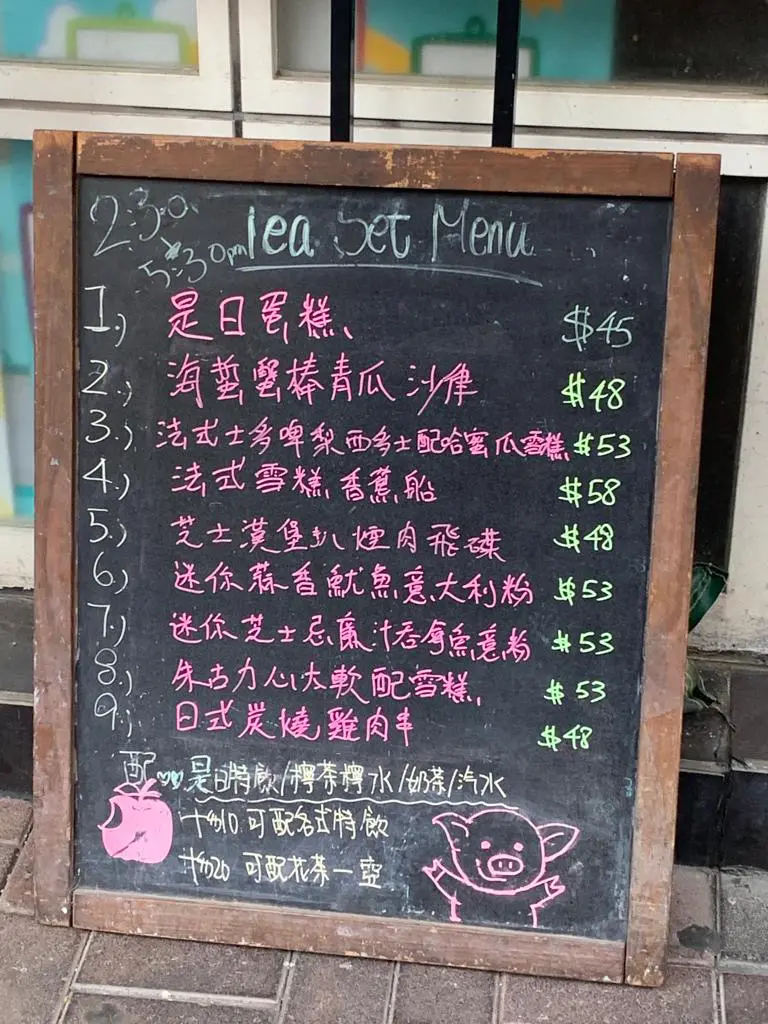 2:30
5:30pm
Tea Set Menu
1.) 是日蛋糕 $45
2.) 海蜇蟹棒青瓜沙律 $48
3.) 法式士多啤梨西多士配哈蜜瓜雪糕 $53
4.) 法式雪糕香蕉船 $58
5.) 芝士漢堡扒煙肉飛碟 $48
6.) 迷你蒜香魷魚意大利粉 $53
7.) 迷你芝士忌廉汁吞拿魚意粉 $53
8.) 朱古力心太軟配雪糕 $53
9.) 日式炭燒雞肉串 $48
配 是日特飲/檸茶檸水/奶茶/汽水
+$10 可配各式特飲
+$20 可配花茶一壺